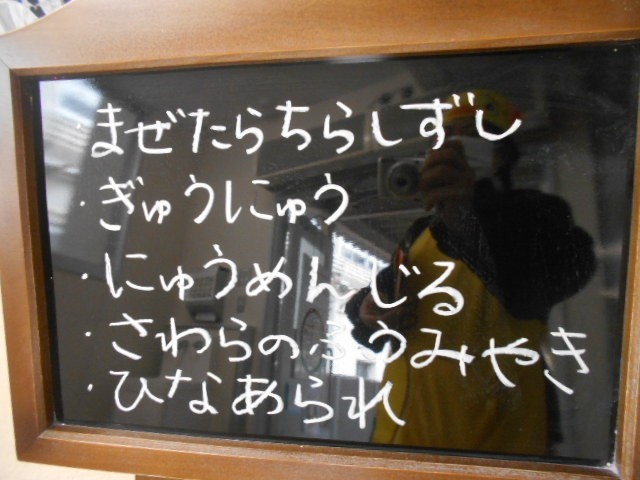 ・まぜたらちらしずし
・ぎゅうにゅう
・にゅうめんじる
・さわらのふうみやき
・ひなあられ